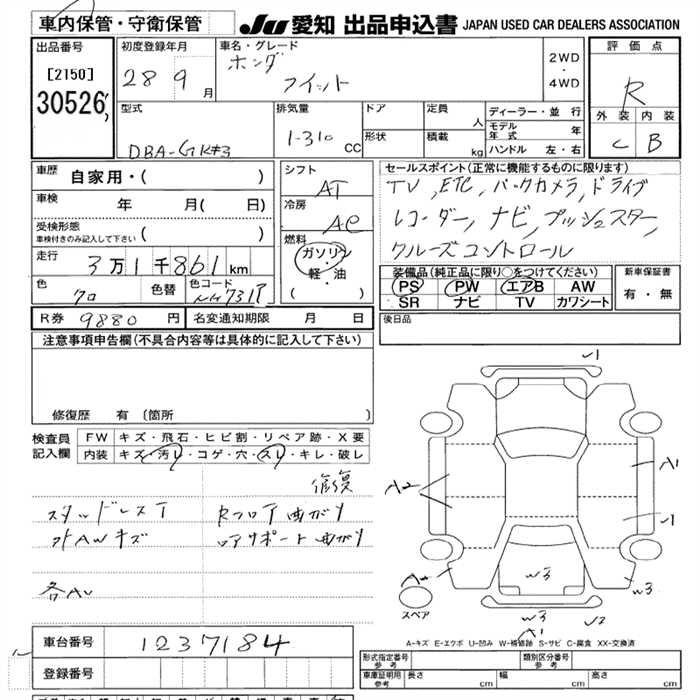 車内保管・守衛保管
JU 愛知 出品申込書 JAPAN USED CAR DEALERS ASSOCIATION
出品番号
[2150]
30526
初度登録年月
28 9 月
車名・グレード
ホンダ
フィット
2WD
・
4WD
評価点
R
外装 内装
C B
型式
DBA-GK#3
排気量
1-310 CC
ドア
形状
定員 人
積載 kg
ディーラー・並行
モデル年式 年
ハンドル 左・右
車歴 自家用・( )
車検 年 月( 日)
受検形態
車検付きのみ記入して下さい ( )
走行 3万1千861km
色 クロ
色替
色コード NH731P
シフト
AT
冷房
AC
燃料
ガソリン
・
軽・油
( )
セールスポイント(正常に機能するものに限ります)
TV,ETC,バックカメラ,ドライブ
レコーダー,ナビ,プッシュスター,
クルーズコントロール
装備品(純正品に限り○をつけてください)
PS PW エアB AW
SR ナビ TV カワシート
新車保証書
有・無
R券 9880円 名変通知期限 月 日
後日品
注意事項申告欄(不具合内容等は具体的に記入して下さい)
修復歴 有 〔箇所
検査員記入欄
FW キズ・飛石・ヒビ割・リペア跡・X要
内装 キズ・汚レ・コゲ・穴・スレ・キレ・破レ
修復
スタッドレスT
Rフロア曲がり
外AWキズ
ロアサポート曲がり
各AU
A2
A1
A
W3
W3
W3
A1
スペア
A-キズ E-エクボ U-凹み W-補修跡 S-サビ C-腐食 XX-交換済
車台番号 1237184
登録番号
形式指定番号参考
類別区分番号参考
車庫証明用参考 長さ cm 幅 cm 高さ cm